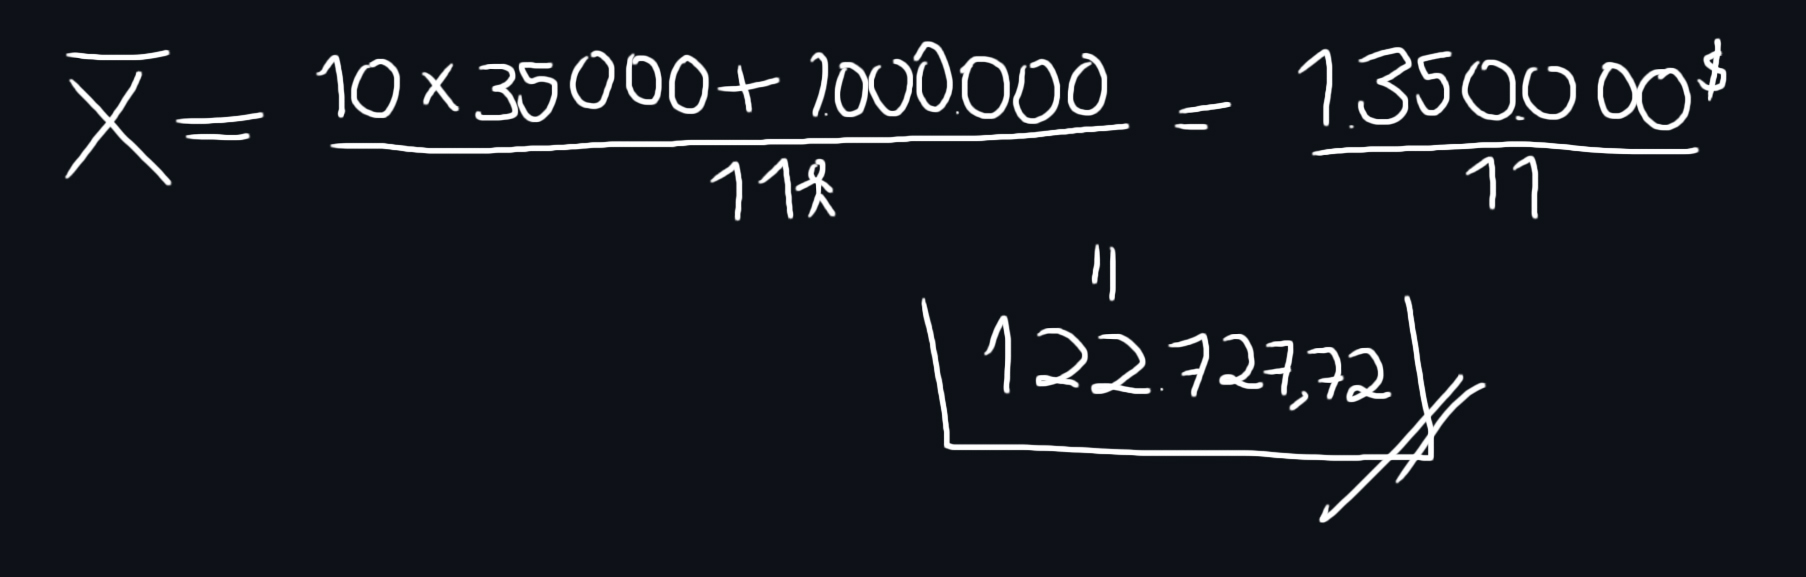 X̅ = 10 x 35000 + 1.000.000 / 11 = 1.350.000$ / 11
=
122.727,72